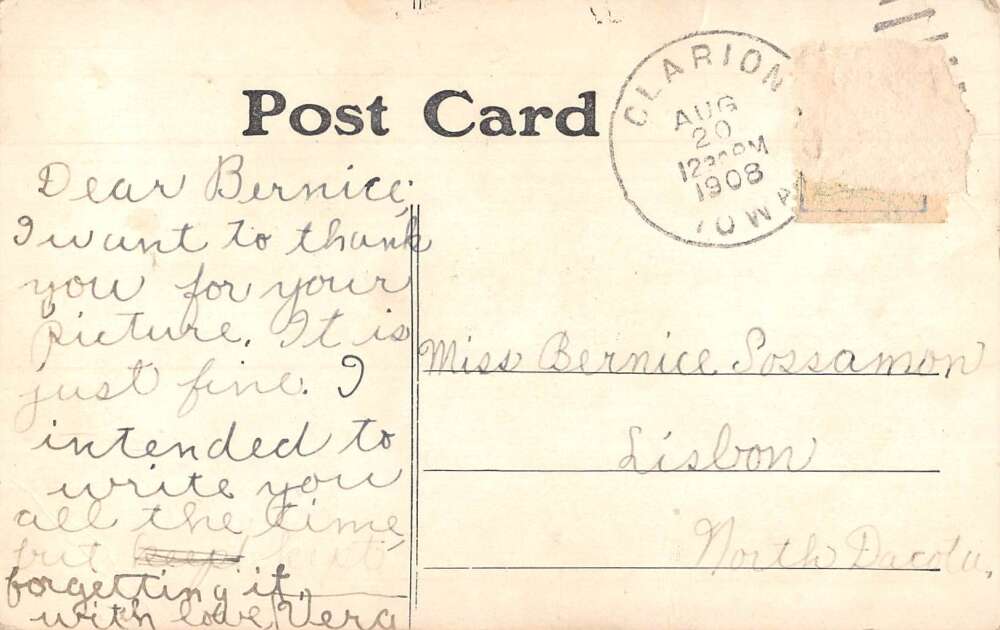 Post Card
CLARION
AUG
20
1908
IOWA
Dear Bernice;
I want to thank
you for your
picture. It is
just fine. I
intended to
write you
all the time,
but keep kept
forgetting it.
with love, Vera
Miss Bernice Sossamon
Lisbon
North Dacota.